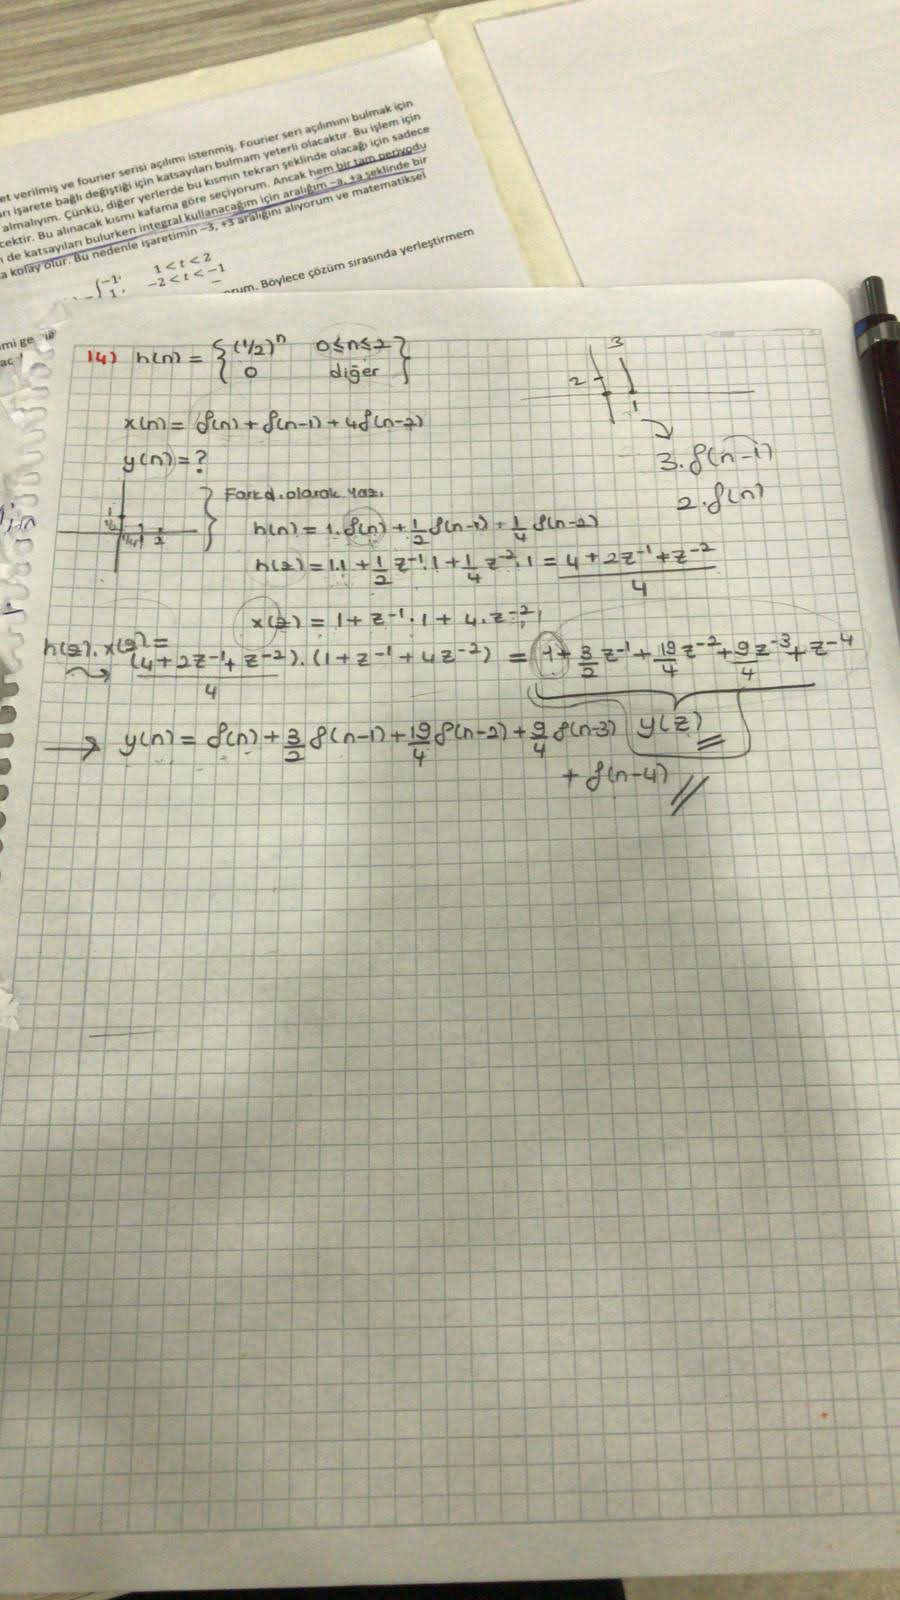 et verilmiş ve fourier serisi açılımı istenmiş. Fourier seri açılımını bulmak için
işarete bağlı değiştiği için katsayıları bulmam yeterli olacaktır. Bu işlem için
almalıyım. Çünkü, diğer yerlerde bu kısmın tekrarı şeklinde olacağı için sadece
cektir. Bu alınacak kısmı kafama göre seçiyorum. Ancak hem bir tam periyodu
de katsayıları bulurken integral kullanacağım için aralığım –a, +a şeklinde bir
a kolay olur. Bu nedenle işaretimin –3, +3 aralığını alıyorum ve matematiksel
-1, 1 < t < 2
1, -2 < t < -1
orum. Böylece çözüm sırasında yerleştirmem
14) h(n) = { (1/2)^n 0≤n≤2
0 diğer }
3
2
1
x(n) = δ(n) + δ(n-1) + 4δ(n-2)
3.δ(n-1)
y(n) = ?
2.δ(n)
1 1/2 1/4 1 2
Fark d. olarak yaz.
h(n) = 1.δ(n) + 1/2 δ(n-1) + 1/4 δ(n-2)
h(z) = 1.1 + 1/2 z^-1.1 + 1/4 z^-2.1 = (4 + 2z^-1 + z^-2)/4
x(z) = 1 + z^-1.1 + 4.z^-2.1
h(z).x(z) =
(4 + 2z^-1 + z^-2)/4 . (1 + z^-1 + 4z^-2) = 1 + 3/2 z^-1 + 19/4 z^-2 + 9/4 z^-3 + z^-4
y(z)
→ y(n) = δ(n) + 3/2 δ(n-1) + 19/4 δ(n-2) + 9/4 δ(n-3)
+ δ(n-4) //